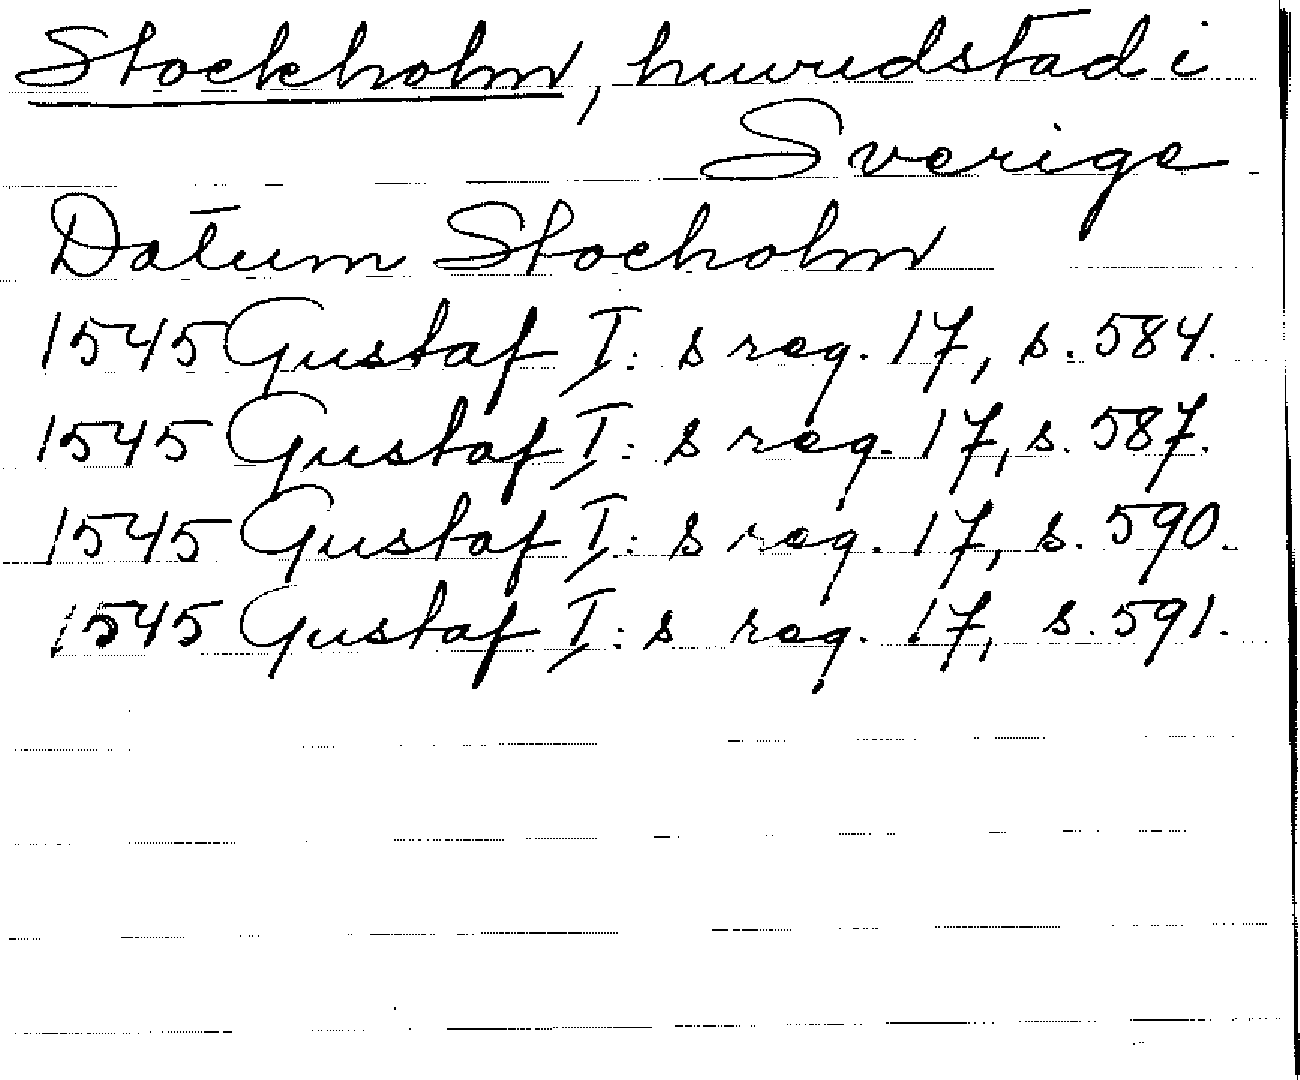 Stockholm, huvudstad i
Sverige
Datum Stocholm
1545 Gustaf I: s reg. 17, s. 584.
1545 Gustaf I: s reg. 17, s. 587.
1545 Gustaf I: s reg. 17, s. 590.
1545 Gustaf I: s reg. 17, s. 591.